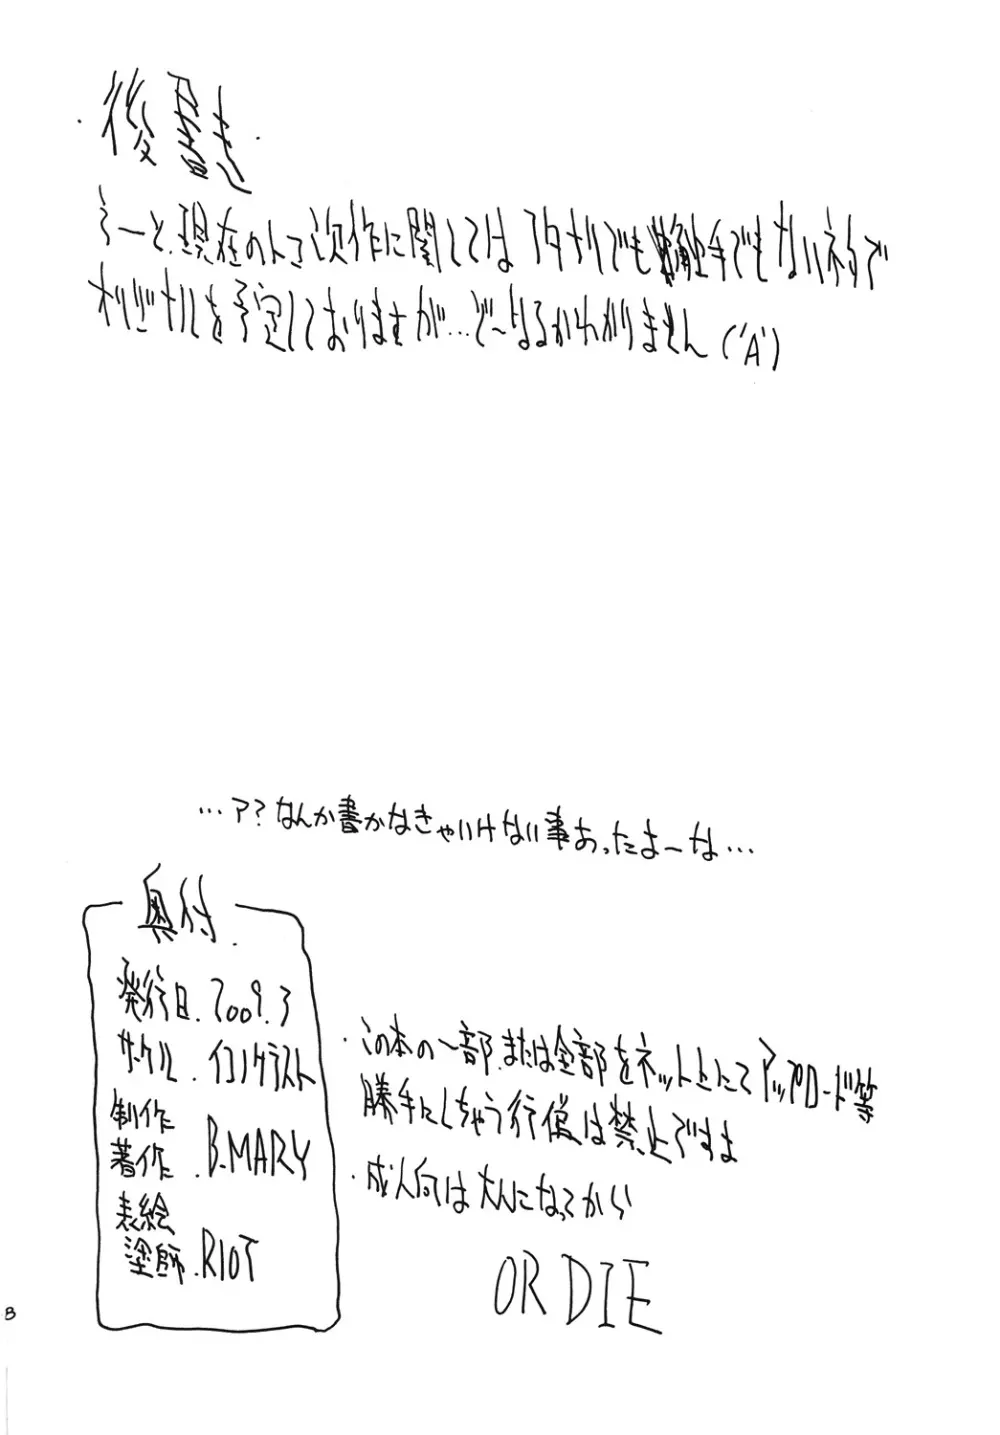 ・後書き・
うーと、現在のトコ次作に関してはフタナリでも触手でもないネタで
オリジナルを予定しておりますが…ど〜なるかわかりません('A`)
…ア?なんか書かなきゃいけない事あったよーな…
奥付.
発行日.2009.3
サークル.イコノクラスト
制作
著作.B.MARY
表絵
塗師.RIOT
・この本の一部.または全部をネット上にてアップロード等
勝手にしちゃう行為は禁止ですよ
・成人向は大人になってから
OR DIE